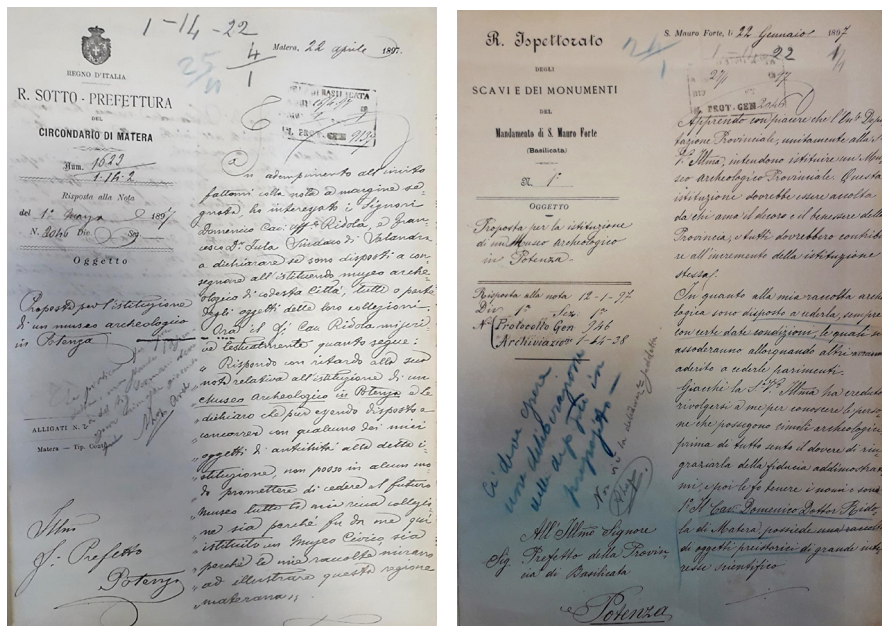 1-14-22
25/11
4/1
Matera, 22 aprile 1897
REGNO D'ITALIA
R. SOTTO-PREFETTURA
DEL
CIRCONDARIO DI MATERA
Num. 1622
1.14.2
Risposta alla Nota
del 1° Marzo 1897
N. 2046 Div. Sez.
Oggetto
Proposta per l'istituzione
di un museo archeologico
in Potenza
ALLIGATI N.
Matera - Tip.
PROT. GEN
In adempimento all'invito
fattomi colla nota a margine se
gnata, ho interpellato i Signori
Domenico Cav. Uff. Ridola, e Fran
cesco Di Sindaco di
a dichiarare se sono disposti a con
segnare all'istituendo museo arche
ologico di codesta Città, tutto o parte
degli oggetti delle loro collezioni.
Ora il Sig. Cav. Ridola mi
testualmente quanto segue:
"Rispondo con ritardo alla sua
"nota relativa all'istituzione di un
"Museo Archeologico in Potenza e le
"dichiaro che pur essendo disposto a
"concorrere con qualcuno dei miei
"oggetti di antichità alla detta i-
"stituzione, non posso in alcun mo
"do promettere di cedere al futuro
"museo tutta la mia ricca collezio
"ne sia perchè fu da me qui
"istituito un Museo Civico, sia
"perchè le mie raccolte mirano
"ad illustrare questa regione
"materana".
Illmo
Sig. Prefetto
Potenza
R. Ispettorato
DEGLI
SCAVI E DEI MONUMENTI
DEL
Mandamento di S. Mauro Forte
(Basilicata)
N. 1°
OGGETTO
Proposta per la istituzione
di un Museo Archeologico
in Potenza.
Risposta alla nota 12-1-97
Div. 1ª Sez. 1ª
N° Protocollo Gen 946
Archiviazione 1-14-38
Ci deve essere
una deliberazione
della dep. in
proposito
Non vi è la deliberazione
All'Illmo Signore
Sig. Prefetto della Provin-
cia di Basilicata
Potenza
24/1
S. Mauro Forte, li 22 Gennaio 1897
1-14-22
PROT. GEN 2046
Apprendo con piacere che l'On. Depu
tazione Provinciale, unitamente alla S.
V. Illma, intendono istituire un Mu
seo Archeologico Provinciale. Questa
istituzione dovrebbe essere accolta
da chi ama il decoro e il benessere della
Provincia, e tutti dovrebbero contribu
ire all'incremento della istituzione
stessa.
In quanto alla mia raccolta arche
logica sono disposto a cederla, sempre
con certe date condizioni, le quali si
assoderanno allorquando altri avranno
aderito a cederle parimenti.
Giacchè la S.V. Illma ha creduto
rivolgersi a me per conoscere le perso
ne che posseggono cimeli archeologici
prima di tutto sento il dovere di rin
graziarla della fiducia addimostrata
mi, e poi le fo tenere i nomi e sono
1° Il Cav. Domenico Dottor Rido
la di Matera, possiede una raccolta
di oggetti preistorici di grande inte
resse scientifico